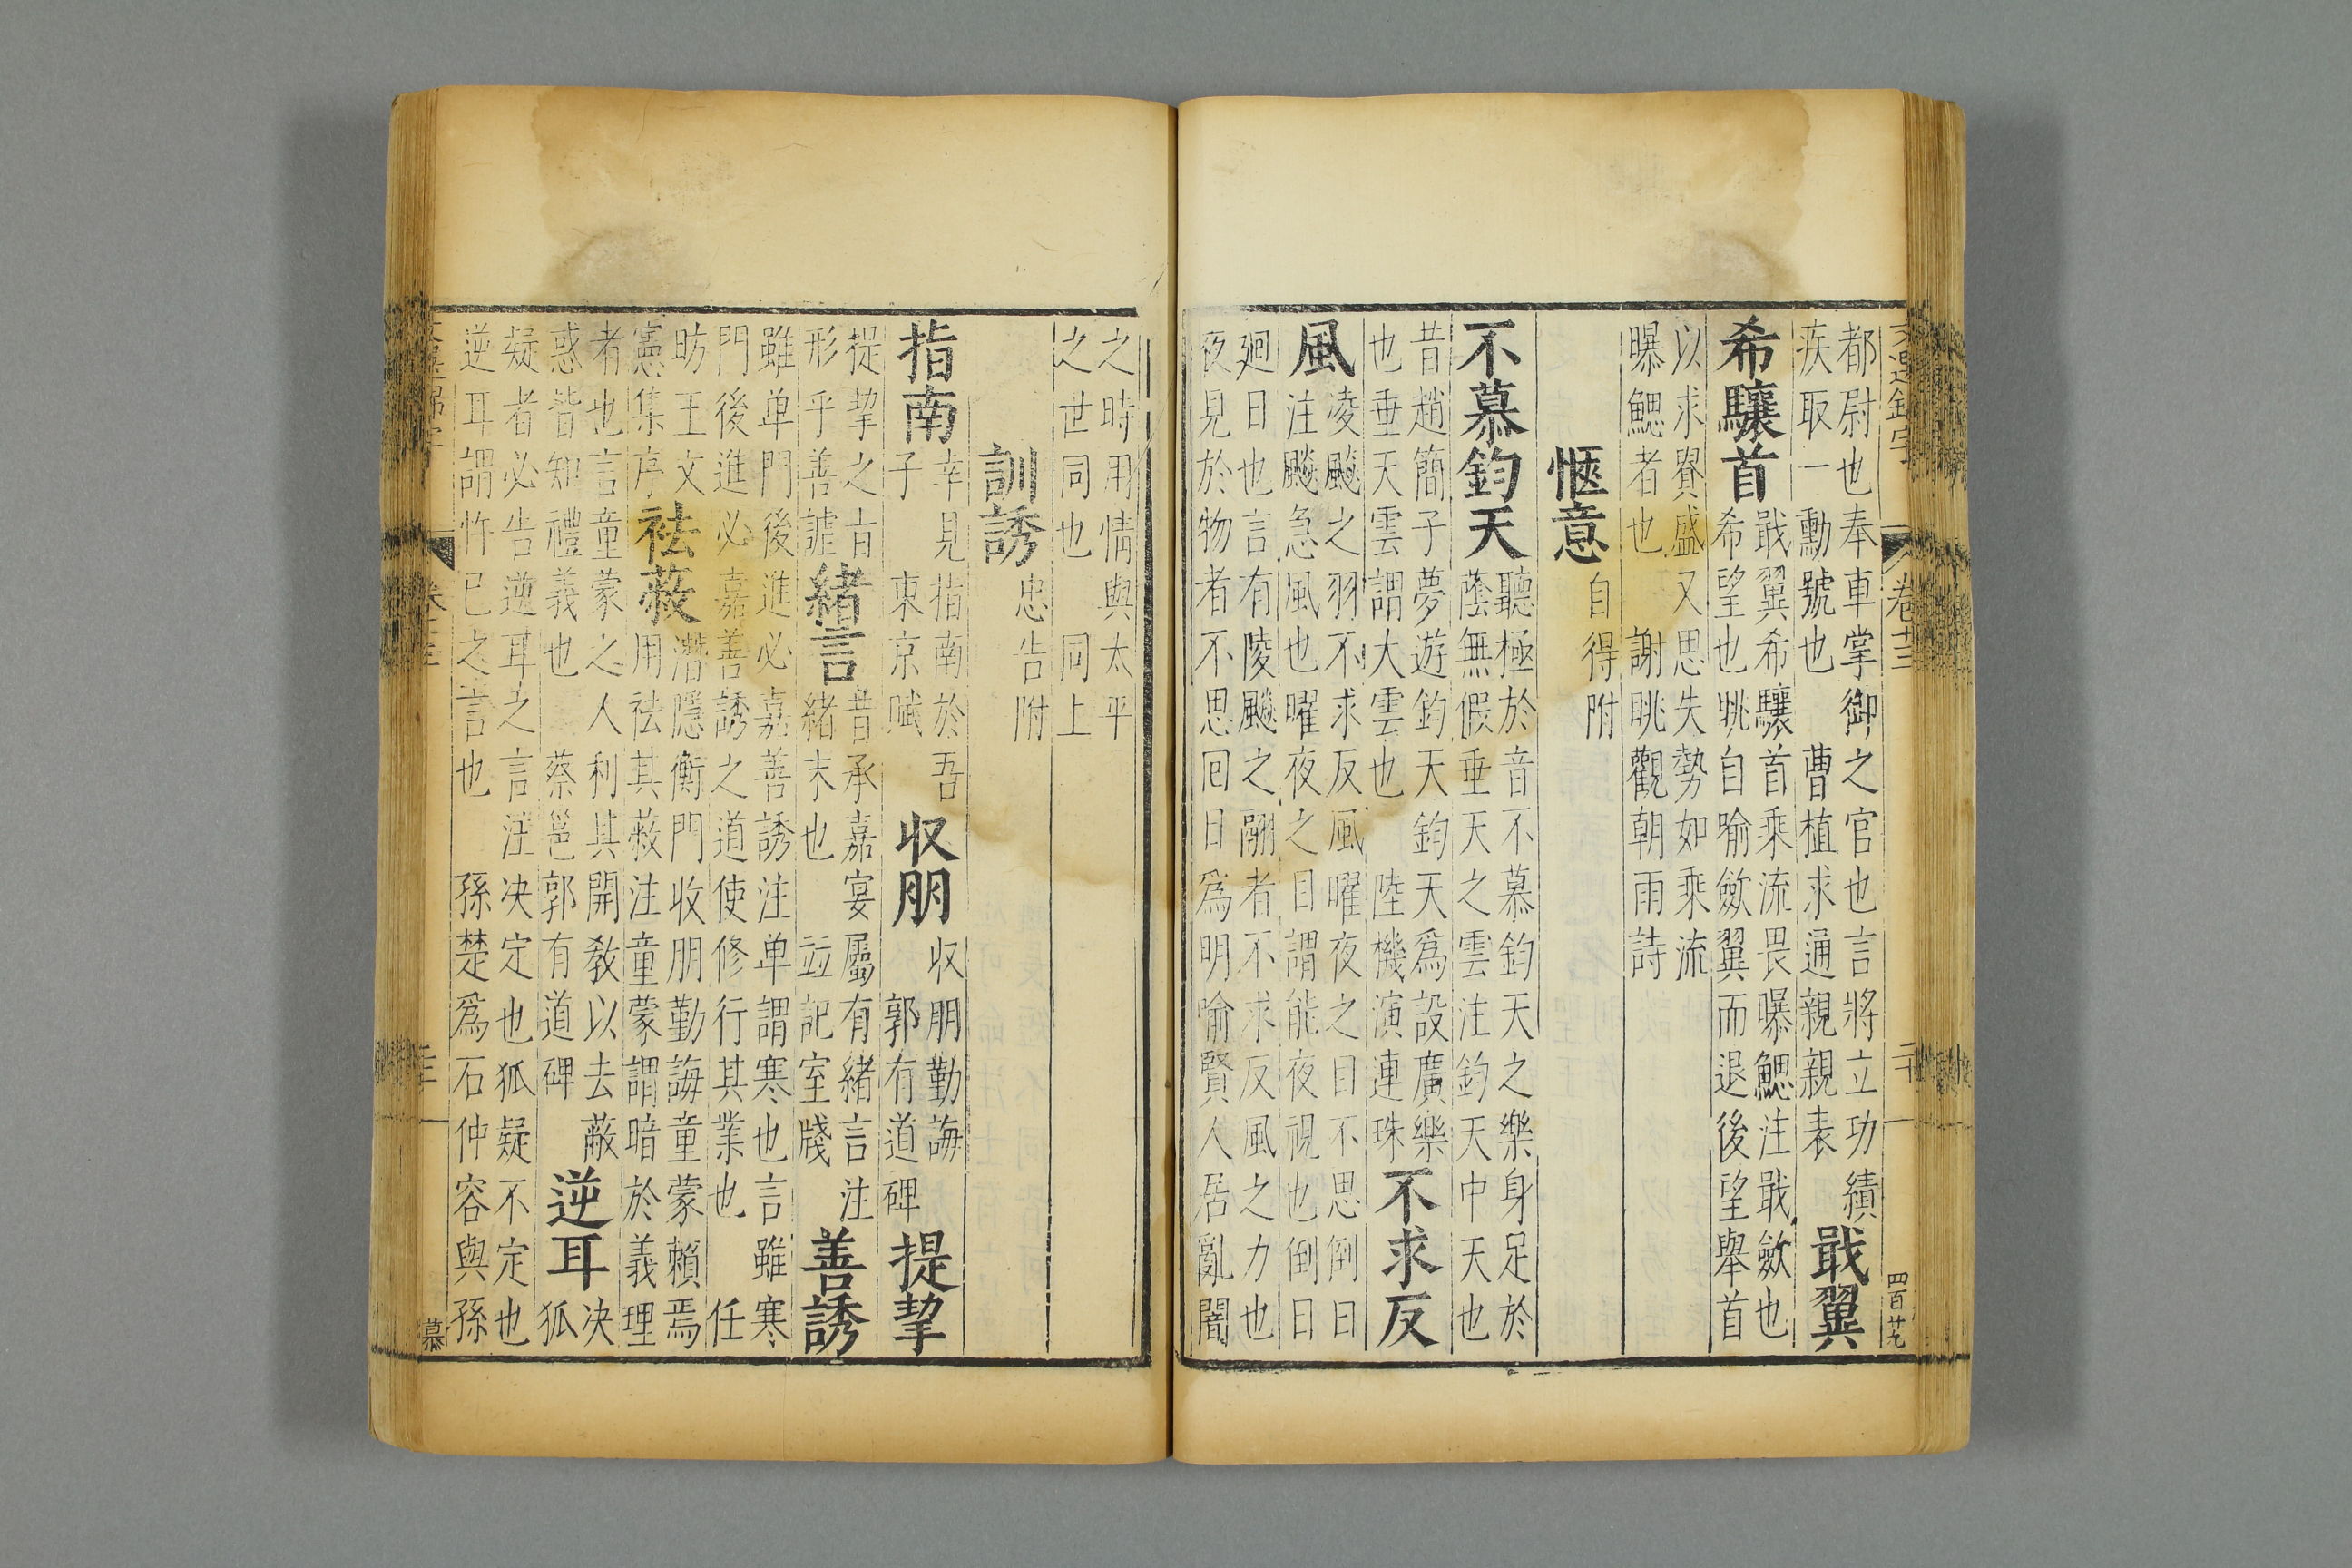 都尉也奉車掌御之官也言將立功績
疾取一勳號也　曹植求通親親表
戢翼
希驤首
戢翼希驤首乘流畏曝鰓注戢斂也
希望也眺自喻斂翼而退後望舉首
以求賢盛又思失勢如乘流
曝鰓者也　謝眺觀朝雨詩
愜意
自得附
不慕鈞天
聽極於音不慕鈞天之樂身足於
蔭無假垂天之雲注鈞天中天也
昔趙簡子夢遊鈞天鈞天為設廣樂
也垂天雲謂大雲也　陸機演連珠
不求反
風
凌飈之羽不求反風曜夜之目不思倒日
注飈急風也曜夜之目謂能夜視也倒日
廻日也言有陵飈之翮者不求反風之力也
夜見於物者不思回日為明喻賢人居亂闇
卷十三
四百廿九
之時用情與太平
之世同也　同上
訓誘
忠告附
指南
幸見指南於吾
子　東京賦
收朋
收朋勤誨
郭有道碑
提挈
提挈之旨
形乎善謔
緒言
昔承嘉宴屬有緒言注
緒末也　竝記室牋
善誘
雖单門後進必嘉善誘注单謂寒也言雖寒
門後進必嘉善誘之道使修行其業也　任
昉王文
憲集序
祛蔽
潛隱衡門收朋勤誨童蒙賴焉
用祛其蔽注童蒙謂暗於義理
者也言童蒙之人利其開教以去蔽
惑皆知禮義也　蔡邕郭有道碑
逆耳
决
狐
疑者必告逆耳之言注决定也狐疑不定也
逆耳謂忤已之言也　孫楚為石仲容與孫
慕